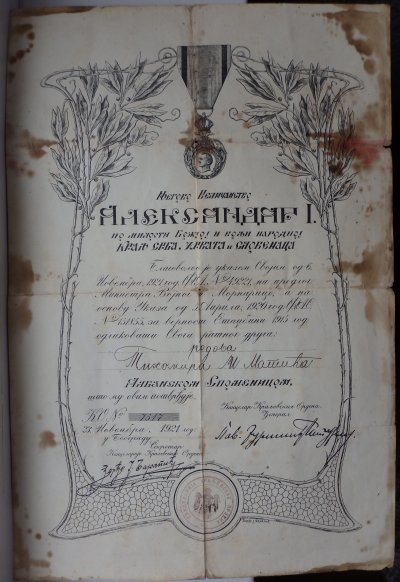 Његово Величанство
Александар I.
по милости Божјој и вољи народној
Краљ Срба, Хрвата и Словенаца
Благоволео је указом Својим од 6.
Новембра, 1921 год. на предлог
Министра Војног и Морнарице, а на
основу Указа од 5. Априла, 1920 год.
за верност Отаџбини 1915 год.
одликовати Свога ратног друга:
редова
Тихомира М. Матића
Албанском Споменицом,
што му овим потврђује.
Канцелар Краљевских Ордена
Ђенерал
23. Новембра, 1921 год.
у Београду
Секретар
Канцелар. Краљевских Ордена